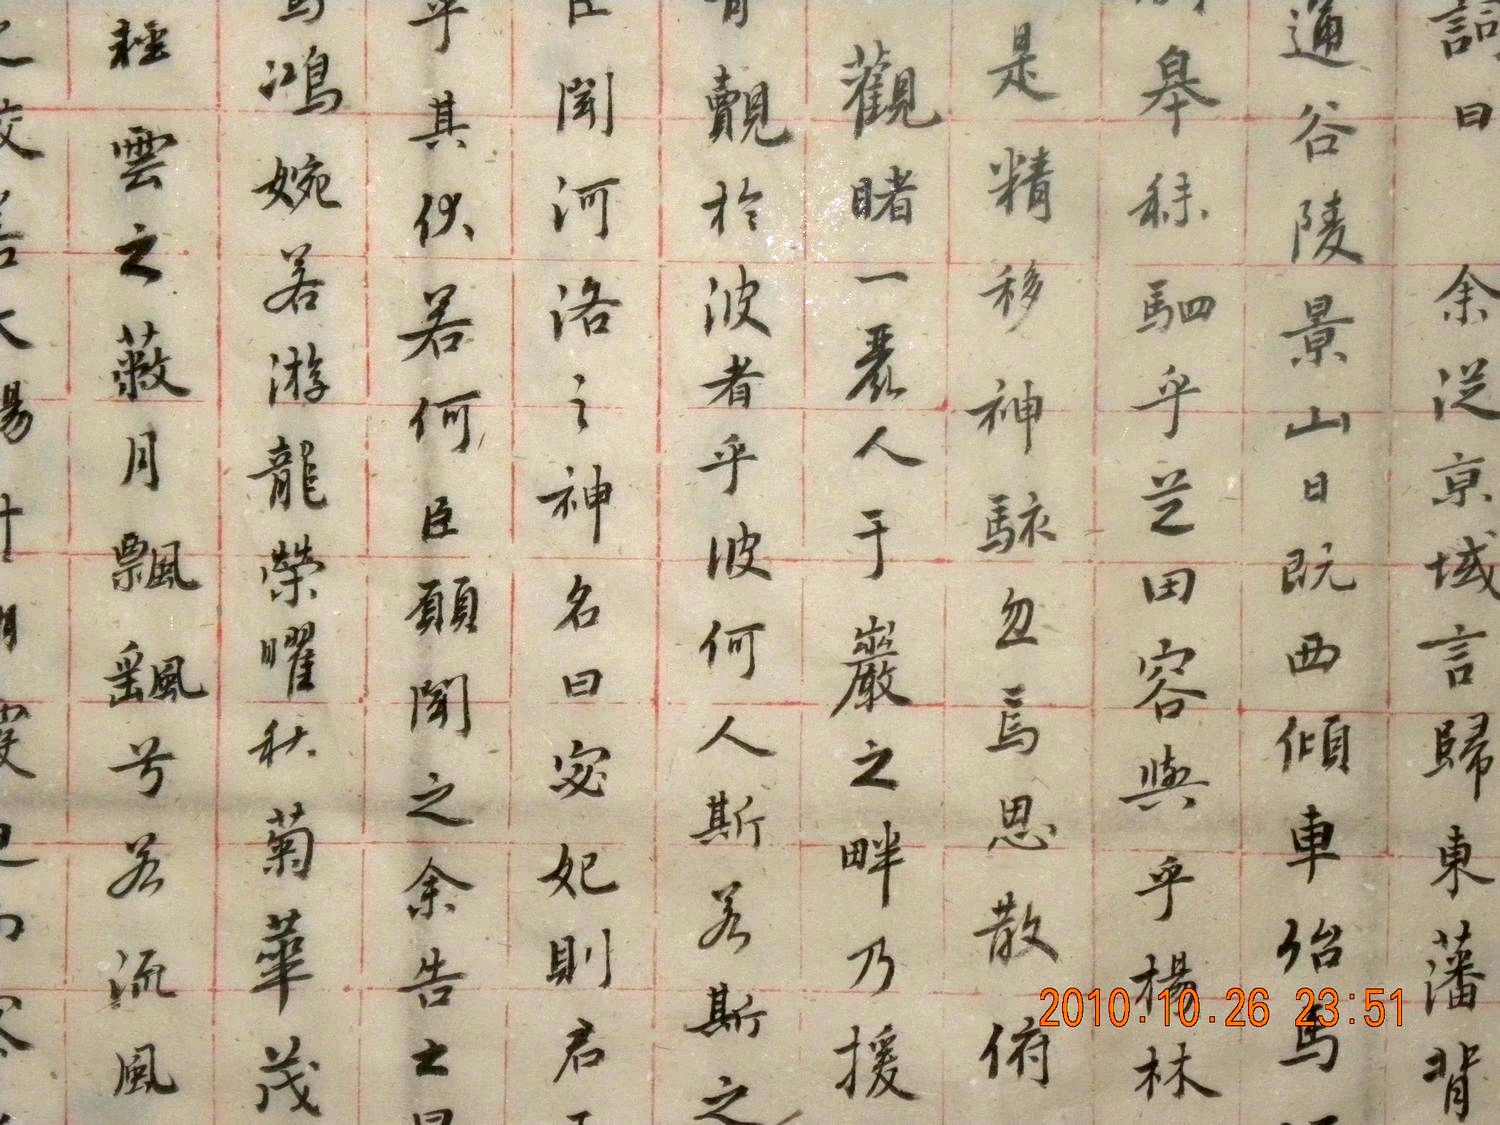 詞曰 余從京域言歸東藩背
通谷陵景山日既西傾車殆馬
皋秣駟乎芝田容與乎楊林
是精移神駭忽焉思散俯
觀睹一麗人于巖之畔乃援
有覿於彼者乎彼何人斯若斯之
臣聞河洛之神名曰宓妃則君
乎其狀若何臣願聞之余告之曰
鴻婉若游龍榮曜秋菊華茂
輕雲之蔽月飄飖兮若流風
之皎若太陽升朝霞
2010.10.26 23:51